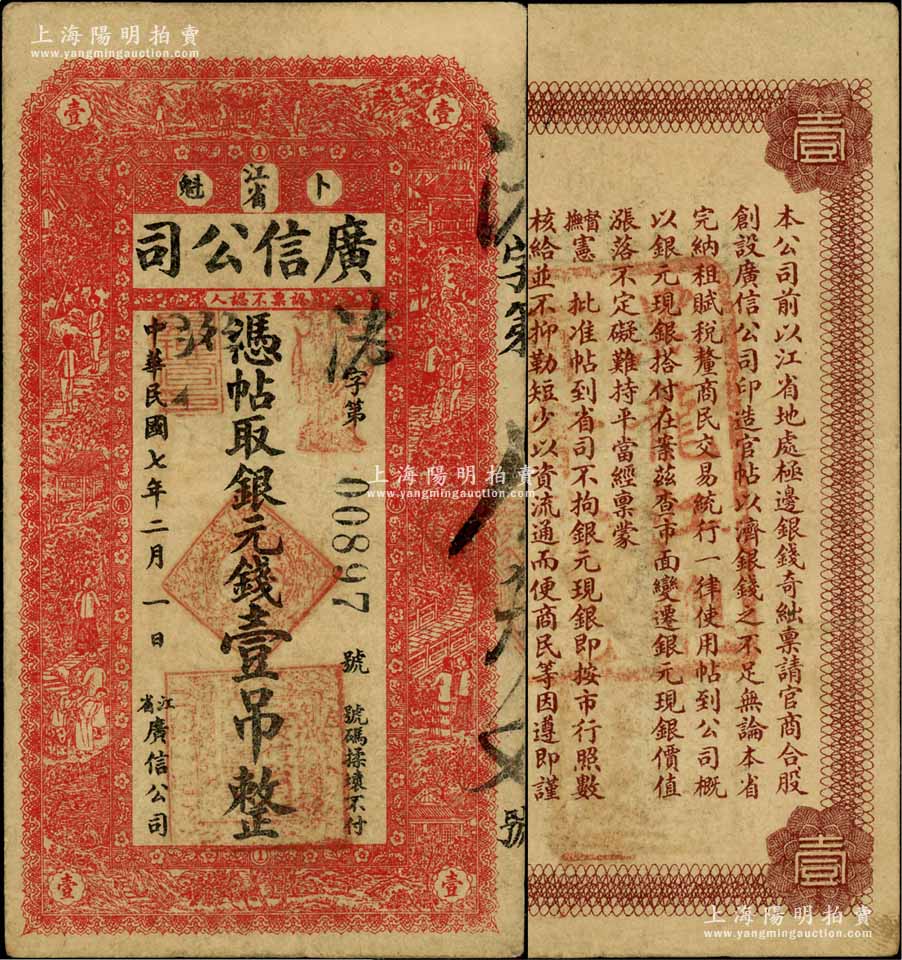 上海陽明拍賣
www.yangmingauction.com
壹 壹
卜 江省 魁
廣信公司
認票不認人
字第
00897
號
號碼揉壞不付
憑帖取銀元錢壹吊整
中華民國七年二月一日
江省廣信公司
壹 壹
字第
號
壹
本公司前以江省地處極邊銀錢奇絀稟請官商合股
創設廣信公司印造官帖以濟銀錢之不足無論本省
完納租賦稅釐商民交易統行一律使用帖到公司概
以銀元現銀搭付在案茲查市面變遷銀元現銀價值
漲落不定礙難持平當經稟蒙
督撫憲 批准帖到省司不拘銀元現銀即按市行照數
核給並不抑勒短少以資流通而便商民等因遵即謹
壹
上海陽明拍賣
www.yangmingauction.com
上海陽明拍賣
www.yangmingauction.com